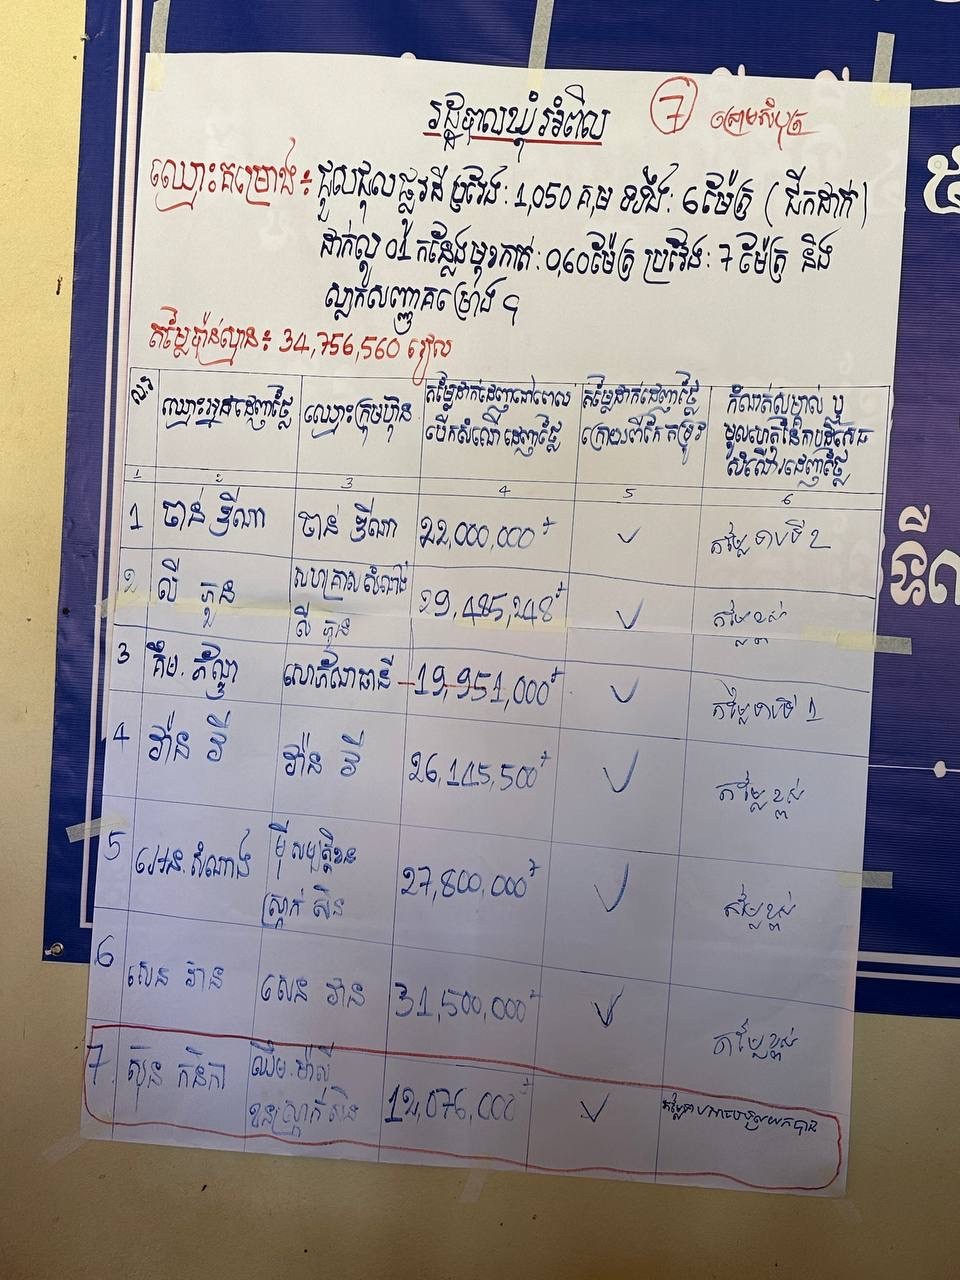 រដ្ឋបាលឃុំរអំពិល
7 ស្រោមសំបុត្រ
ឈ្មោះគម្រោង៖ ជួសជុលផ្លូវដី ប្រវែង: 1,050 គ.ម ទទឹង: 6ម៉ែត្រ (ជីកដាក់)
ដាក់លូ 01 កន្លែងមុខកាត់: 0,60ម៉ែត្រ ប្រវែង: 7 ម៉ែត្រ និង
ស្លាកសញ្ញាគម្រោង ។
តម្លៃប៉ាន់ស្មាន៖ 34,756,560 រៀល
ល.រ ឈ្មោះអ្នកដេញថ្លៃ ឈ្មោះក្រុមហ៊ុន តម្លៃដាក់ដេញនៅពេល បើកសំណើដេញថ្លៃ តម្លៃដាក់ដេញថ្លៃ ក្រោយពីកែតម្រូវ កំណត់សម្គាល់ ឬ មូលហេតុនៃការបដិសេធ សំណើរដេញថ្លៃ
1 2 3 4 5 6
1 ចាន់ ឌីណា ចាន់ ឌីណា 22,000,000៛ ✓ តម្លៃទាបទី 2
2 លី សហគ្រាស សំណង់ លី 29,485,248៛ ✓ តម្លៃខ្ពស់
3 គឹម. សោភ័ណធានី 19,951,000៛ ✓ តម្លៃទាបទី 1
4 វ៉ាន វី វ៉ាន វី 26,145,500៛ ✓ តម្លៃខ្ពស់
5 អេន. សំណាង ម៉ី សម្បត្តិខន ស្ត្រាក់ សិន 27,800,000៛ ✓ តម្លៃខ្ពស់
6 សេន វ៉ាន សេន វ៉ាន 31,500,000៛ ✓ តម្លៃខ្ពស់
7. ស៊ុន កនិកា ឈឹម. ម៉ាលី ខនស្ត្រាក់សិន 12,076,000៛ ✓ តម្លៃទាបអាចទទួលយកបាន